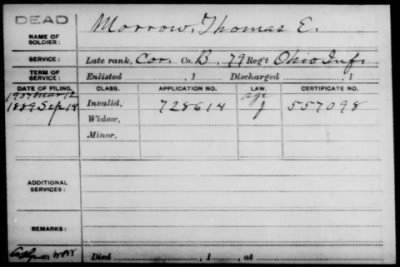 DEAD
NAME OF SOLDIER: Morrow, Thomas E.
SERVICE: Late rank, Cor. Co. B, 79 Reg't Ohio Inf.
TERM OF SERVICE: Enlisted , 1 Discharged , 1
DATE OF FILING. CLASS. APPLICATION NO. LAW. CERTIFICATE NO.
1907 Mar 12 age
1889 Sep 14 Invalid, 728614 J 557098
Widow,
Minor,
ADDITIONAL SERVICES:
REMARKS:
Died , 1 , at